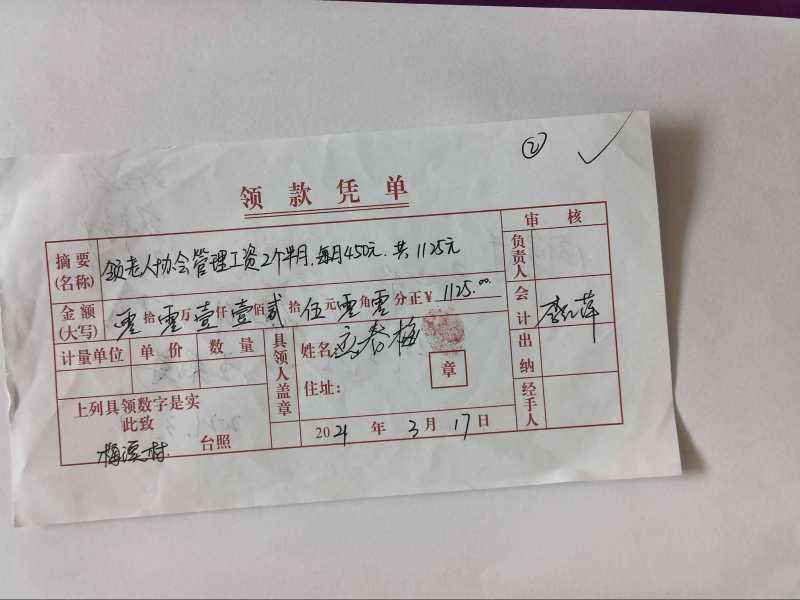 ②
领款凭单
审核
摘要(名称) 领老人协会管理工资2个半月,每月450元.共1125元
负责人
金额(大写) 零拾零万壹仟壹佰贰拾伍元零角零分正¥1125.00
会计
计量单位 单价 数量
具领人盖章
姓名: 春梅
章
住址:
出纳
经手人
上列具领数字是实
此致
梅溪村 台照
2021年3月17日